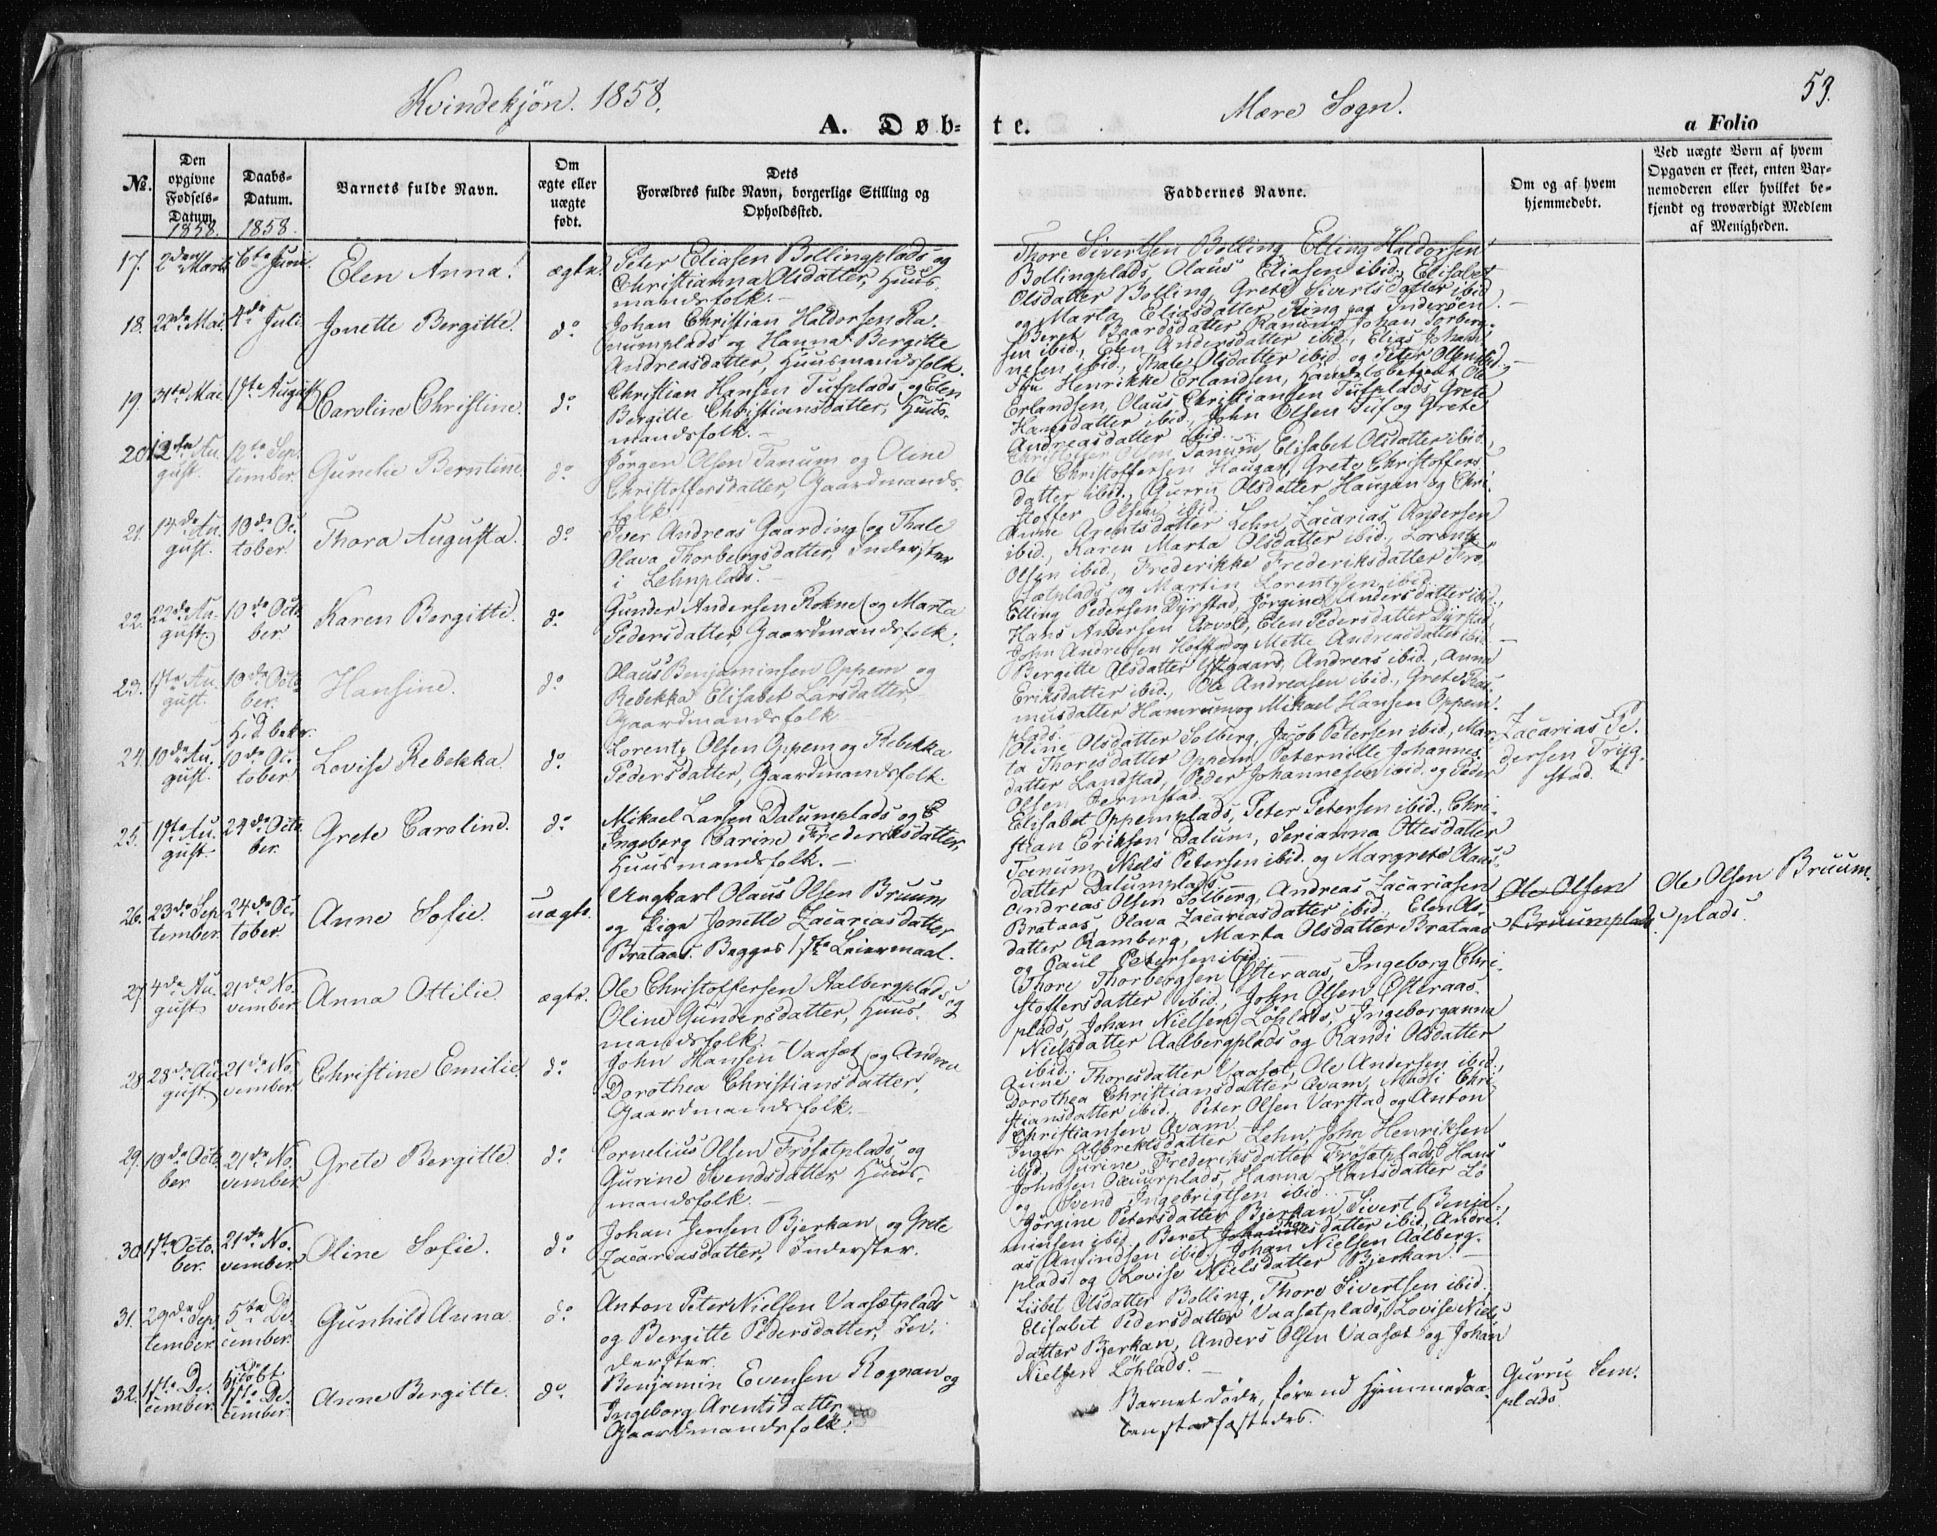 Kvindekjøn. 1858.
A. Døb-
te.
Mære Sogn.
53.
a Folio
No.
Den opgivne Fødsels-Datum.
1858.
Daabs-Datum.
1858.
Barnets fulde Navn.
Om ægte eller uægte født.
Dets Forældres fulde Navn, borgerlige Stilling og Opholdssted.
Faddernes Navne.
Om og af hvem hjemmedøbt.
Ved uægte Børn af hvem Opgaven er skeet, enten Barnemoderen eller hvilket bekjendt og troværdigt Medlem af Menigheden.
17. 2den Marts 6te Juni. Elen Anna. ægte.
Peter Eliasen Bollingplads og
Christianna Olsdatter, Huus-
mandsfolk.
Thore Sivertsen Bolling, Elling Haldorsen
Bollingplads, Olaus Eliasen ibid., Elisabet
Olsdatter Bolling, Grete Sivertsdatter ibid
og Marta Eliasdatter Ring paa Inderøen.
18. 22de Mai. 4de Juli Jonette Bergitte. do
Johan Christian Haldorsen Ra-
numplads og Hanna Bergitte
Andreasdatter, Huusmandsfolk.
Beret Baardsdatter Ranum, Johan Torberg-
sen ibid., Elen Andersdatter ibid., Elias Johan-
nesen ibid., Thale Olsdatter ibid og Peter Olsen ibid.
19. 31te Mai. 1ste August Caroline Christine. do
Christian Hansen Tufplads og Elen
Bergitte Christiansdatter, Huus-
mandsfolk.
Fru Henrikke Erlandsen, Handelsbetjent Ole
Erlandsen, Olaus Christiansen Tufplads, Grete
Hansdatter ibid., John Olsen Tuf og Grete
Andreasdatter ibid.
20. 12de Au-
gust. 12te Sep-
tember. Gunelie Berntine. do
Jørgen Olsen Tanum og Oline
Christoffersdatter, Gaardmands-
folk.
Christoffer Olsen Tanum, Elisabet Olsdatter ibid.,
Ole Christoffersen Haugan, Grete Christoffers-
datter ibid., Gurru Olsdatter Haugan og Chri-
stoffer Olsen ibid.
21. 14de Au-
gust. 10de Oc-
tober. Thora Augusta. do
Iver Andreas Gaarding og Thale
Olava Thorbergsdatter, Inderster
i Lehnplads.
Anne Arentsdatter Lehn, Zacarias Andersen
ibid., Karen Marta Olsdatter ibid., Lorents
Olsen ibid., Frederikke Frederiksdatter Frø-
sætplads og Martin Lorentsen ibid.
22. 22de Au-
gust. 10de Octo-
ber Karen Bergitte. do
Gunder Andersen Rokne og Marta
Pedersdatter, Gaardmandsfolk.
Elling Pedersen Dyrstad, Jørgine Andersdatter ibid.,
Hans Andersen Qvold, Elen Pedersdatter Dyrstad,
John Andresen Hoffer og Mette Andreasdatter ibid.
23. 1ste Au-
gust. 10de Octo-
ber.
H. D. bekr. Hansine. do
Olaus Benjaminsen Oppem og
Rebekka Elisabet Larsdatter,
Gaardmandsfolk
Bergitte Olsdatter Ystgaard, Andreas ibid., Anna
Eriksdatter ibid., Ole Andreasen ibid., Grete Ras-
musdatter Hamrum og Mikael Hansen Oppem-
plads.
24. 10de Au-
gust. 10de Oc-
tober Lovise Rebekka. do
Lorents Olsen Oppem og Rebekka
Pedersdatter, Gaardmandsfolk.
Oline Olsdatter Solberg, Jacob Petersen ibid., Mar-
ta Thoresdatter Oppem, Peternille Johannes-
datter Landstad, Peder Johannesen ibid. og Peder
Olsen Jermstad.
Zacarias Pe-
dersen Tryg-
stad.
25. 19te Au-
gust. 24de Octo-
ber. Grete Caroline. do
Mikael Larsen Dalumplads og
Ingeborg Carine Frederiksdatter,
Huusmandsfolk.
Elisabet Oppemplads, Peter Petersen ibid., Chri-
stian Eriksen Dalum, Serianna Ottesdatter
Tanum, Niels Petersen ibid. og Margrete Olaus-
datter Dalumplads.
26. 23de Sep-
tember 24de Oc-
tober. Anne Sofie. uægte.
Ungkarl Olaus Olsen Bruum
og Pige Jonette Zacariasdatter
Brataas. Begges 1ste Leiermaal.
Andreas Olsen Solberg, Andreas Zacariasen
Brataas, Olava Zacariasdatter ibid., Elen Ols-
datter Ramberg, Marta Olsdatter Brataas
og Paul Petersen ibid.
Ole Olsen
Bruumplads.
Ole Olsen Bruum-
plads.
27. 4de Au-
gust 21de No-
vember Anna Ottilie. ægte.
Ole Christoffersen Aalbergplads og
Oline Gundersdatter, Huus-
mandsfolk.
Thore Thorbergsen Østeraas, Ingeborg Chri-
stoffersdatter ibid., John Olsen Østeraas-
plads, Johan Nielsen Løhlads, Ingeborganna
Nielsdatter Aalbergplads og Randi Olsdatter
ibid.
28. 28de Au-
gust 21de No-
vember. Christine Emilie. do
John Hansen Vaasæt og Andrea
Dorothea Christiansdatter,
Gaardmandsfolk.
Anne Thoresdatter Vaasæt, Ole Andersen ibid.,
Dorothea Christiansdatter Qvam, Madsi Chri-
stiansdatter ibid., Peter Olsen Varstad og Anton
Christiansen Qvam
29. 10de Octo-
ber 21de No-
vember Grete Bergitte. do
Cornelius Olsen Frøsetplads og
Gurine Svendsdatter, Huus-
mandsfolk.
Inger Albrektsdatter Lehn, John Henriksen
ibid., Gurine Frederiksdatter Frøsetplads, Hans
Johnsen Qvaurplads, Hanna Hansdatter Lø
og Svend Ingebrigtsen ibid.
30. 1ste Octo-
ber. 21de No-
vember. Oline Sofie. do
Johan Jensen Bjerkan og Grete
Zacariasdatter, Inderster.
Jørgine Petersdatter Bjerkan, Sivert Benja-
minsen ibid., Beret Johannesdatter ibid., Andre-
as Anfindsen ibid., Johan Nielsen Aalberg-
plads og Lovise Nielsdatter Bjerkan.
31. 29de Sep-
tember. 5te De-
cember. Gunhild Anna do
Anton Peter Nielsen Vaasætplads
og Bergitte Pedersdatter, In-
derster.
Lisbet Olsdatter Bolling, Thore Sivertsen ibid.
Elisabet Pedersdatter Vaasætplads, Lovise Niels-
datter Bjerkan, Anders Olsen Vaasæt og Johan
Nielsen Løhlads.
32. 1ste De-
cember. Hjdøbt
1ste De-
cember. Anne Bergitte. do
Benjamin Evensen Rognan og
Ingeborg Arentsdatter
Gaardmandsfolk.
Barnet døde, førend Hjemmedaa-
ben stadfæstedes.
Gurru Sem-
plads.